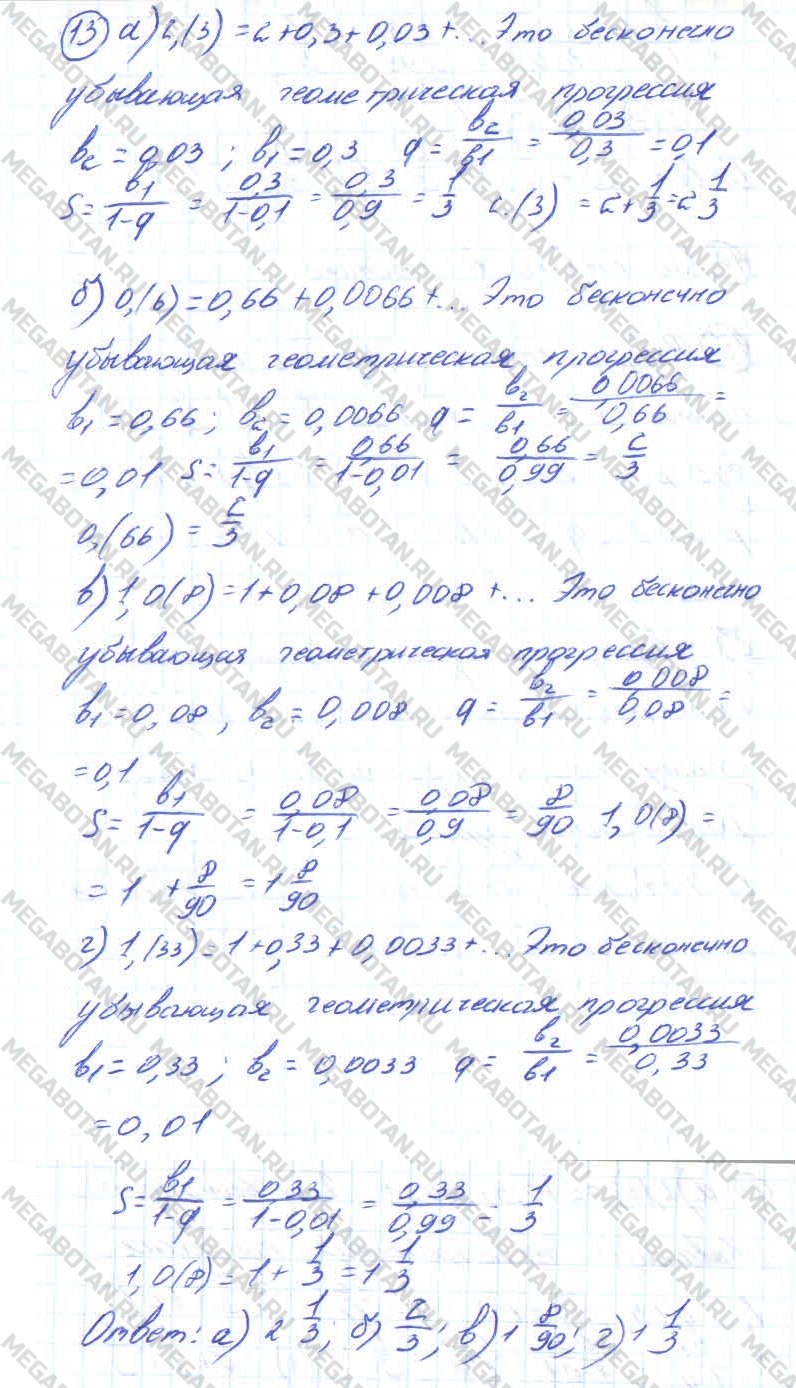 13 а) 2,(3) = 2+0,3+0,03+... Это бесконечно
убывающая геометрическая прогрессия
b2 = 0,03 ; b1 = 0,3 q = b2/b1 = 0,03/0,3 = 0,1
S = b1/(1-q) = 0,3/(1-0,1) = 0,3/0,9 = 1/3 2.(3) = 2+1/3 = 2 1/3
б) 0,(6) = 0,66 + 0,0066 + ... Это бесконечно
убывающая геометрическая прогрессия
b1 = 0,66 ; b2 = 0,0066 q = b2/b1 = 0,0066/0,66 =
= 0,01 S = b1/(1-q) = 0,66/(1-0,01) = 0,66/0,99 = 2/3
0,(66) = 2/3
в) 1,0(8) = 1+0,08+0,008+... Это бесконечно
убывающая геометрическая прогрессия
b1 = 0,08 , b2 = 0,008 q = b2/b1 = 0,008/0,08 =
= 0,1
S = b1/(1-q) = 0,08/(1-0,1) = 0,08/0,9 = 8/90 1,0(8) =
= 1 + 8/90 = 1 8/90
г) 1,(33) = 1+0,33+0,0033+... Это бесконечно
убывающая геометрическая прогрессия
b1 = 0,33 ; b2 = 0,0033 q = b2/b1 = 0,0033/0,33
= 0,01
S = b1/(1-q) = 0,33/(1-0,01) = 0,33/0,99 = 1/3
1,0(8) = 1 + 1/3 = 1 1/3
Ответ: а) 2 1/3; б) 2/3; в) 1 8/90; г) 1 1/3
MEGABOTAN.RU